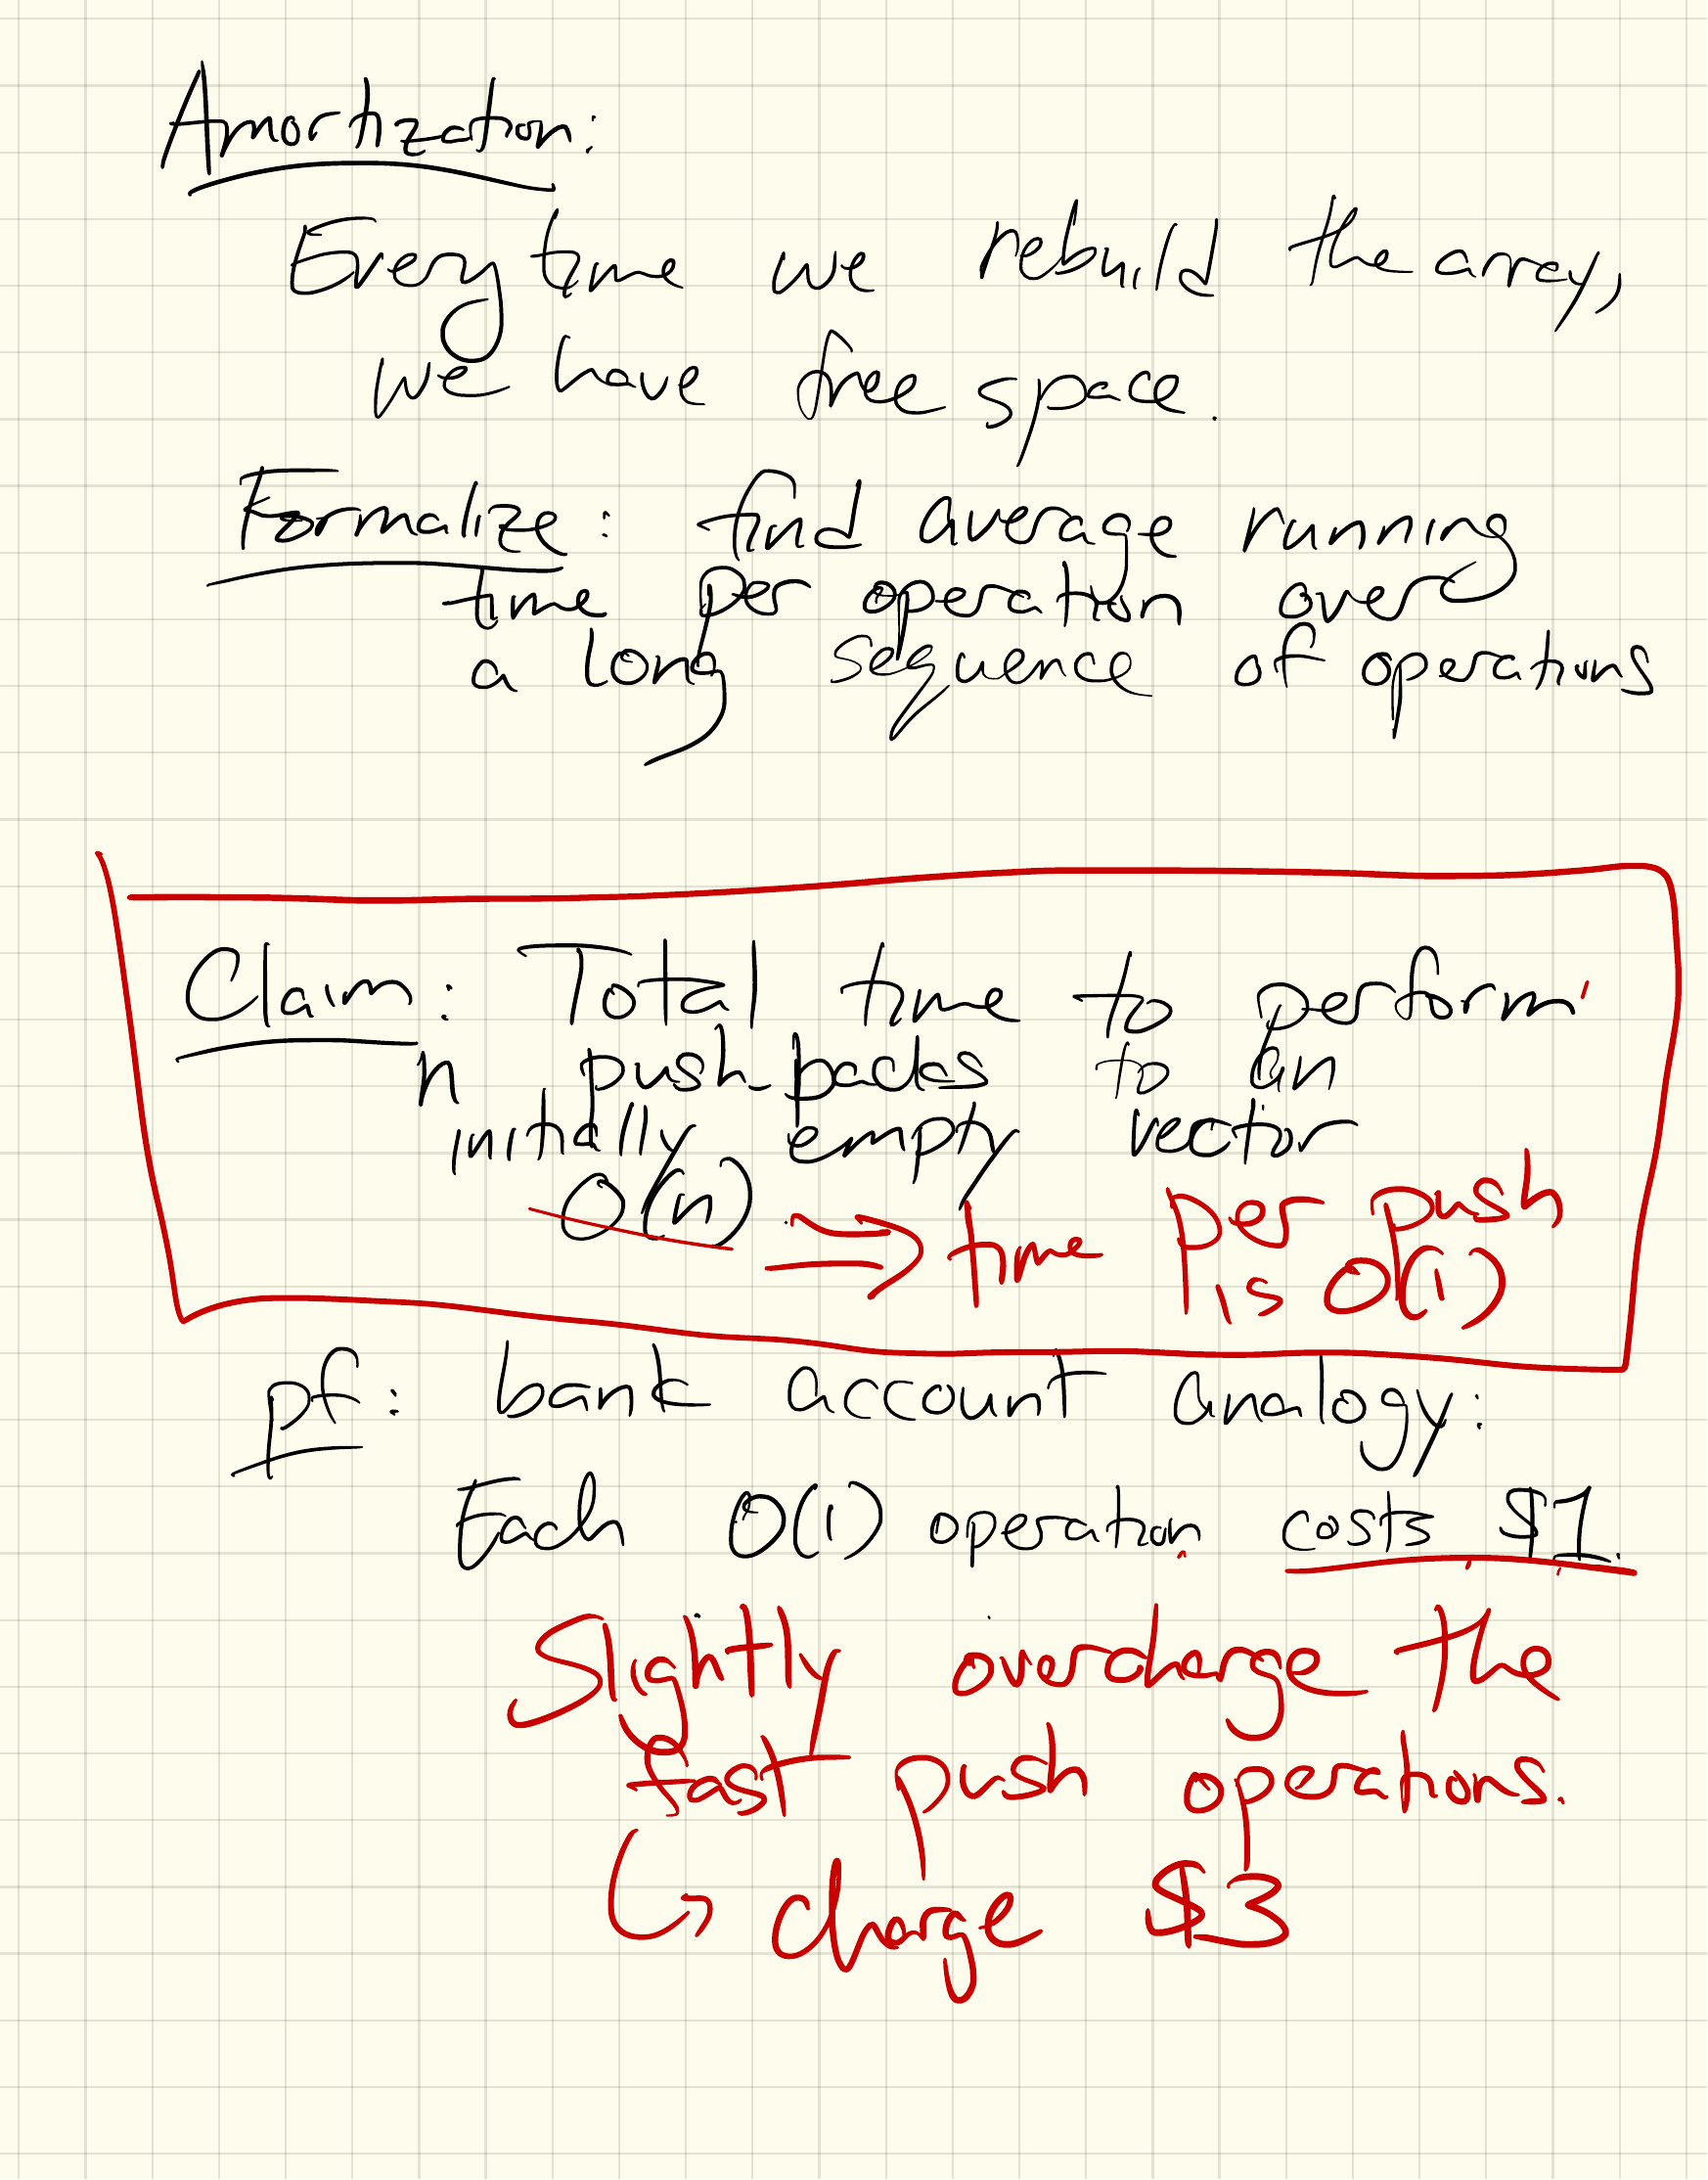 Amortization:
Every time we rebuild the array,
we have free space.
Formalize: find average running
time per operation over
a long sequence of operations
Claim: Total time to perform
n push_backs to an
initially empty vector
O(n) ⇒ time per push
is O(1)
pf: bank account analogy:
Each O(1) operation costs $1.
Slightly overcharge the
fast push operations.
↳ charge $3